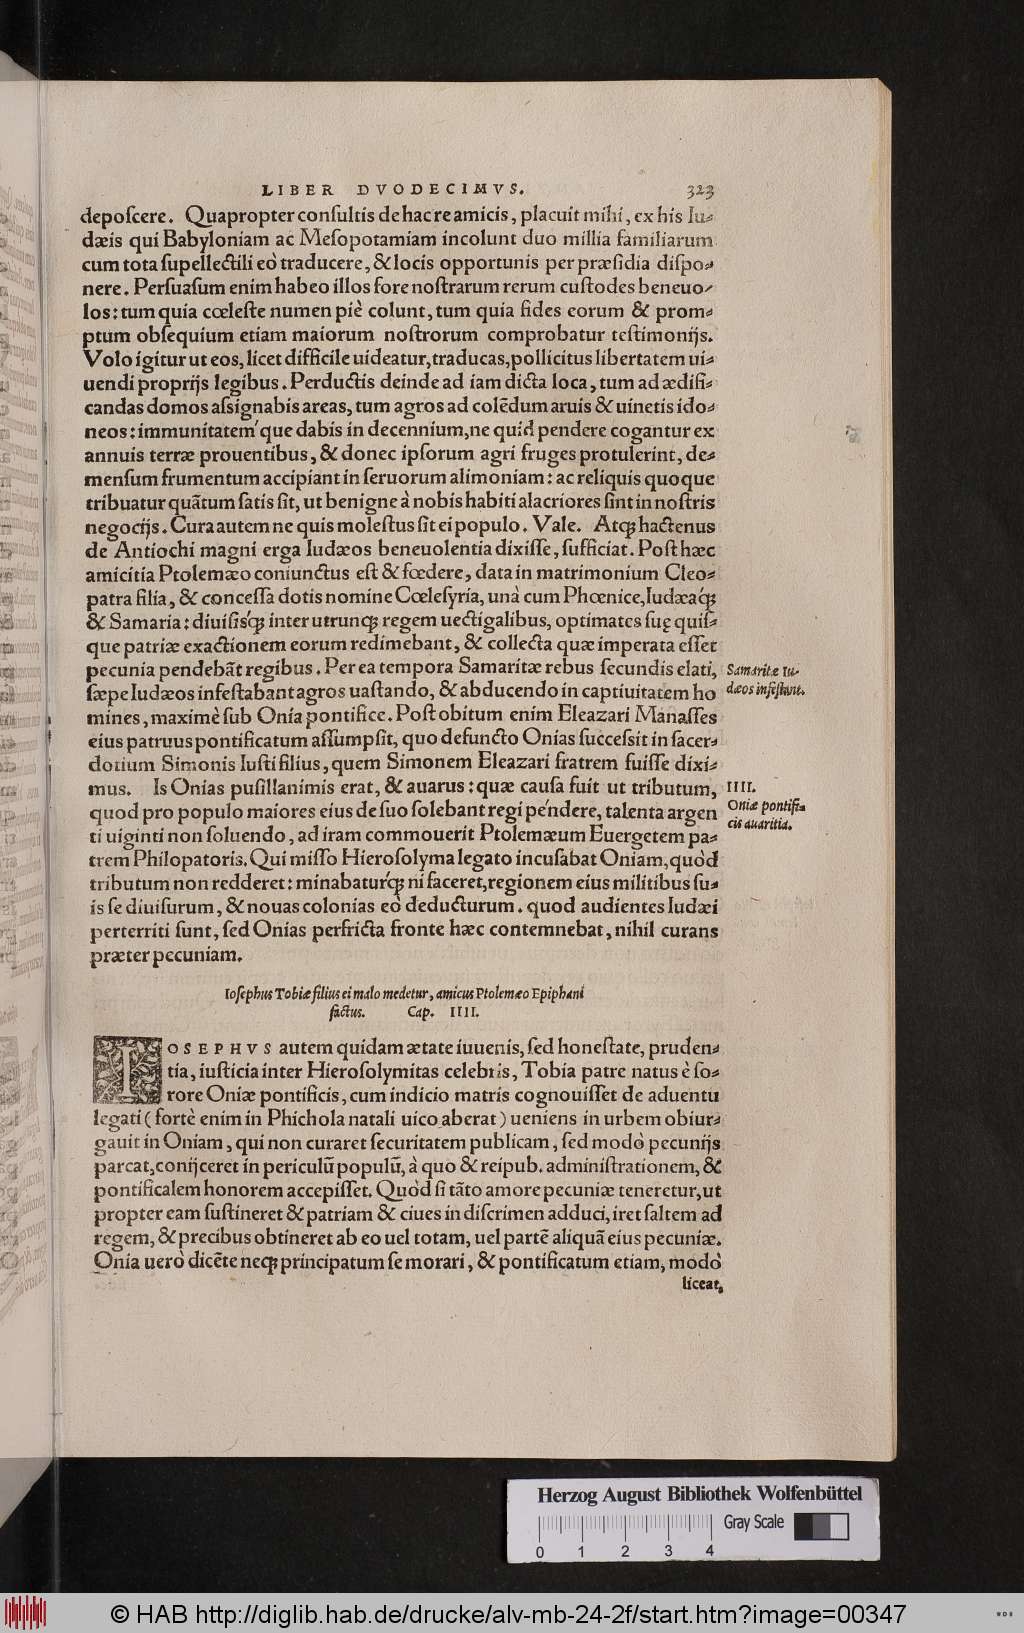 LIBER DVODECIMVS. 323
depoſcere. Quapropter conſultis de hac re amicis, placuit mihi, ex his Iu⸗
dæis qui Babyloniam ac Meſopotamiam incolunt duo millia familiarum
cum tota ſupellectili eò traducere, & locis opportunis per præſidia diſpo⸗
nere. Perſuaſum enim habeo illos fore noſtrarum rerum cuſtodes beneuo⸗
los: tum quia cœleſte numen piè colunt, tum quia fides eorum & prom⸗
ptum obſequium etiam maiorum noſtrorum comprobatur teſtimonijs.
Volo igitur ut eos, licet difficile uideatur, traducas, pollicitus libertatem ui⸗
uendi proprijs legibus. Perductis deinde ad iam dicta loca, tum ad ædifi⸗
candas domos aſsignabis areas, tum agros ad colēdum aruis & uinetis ido⸗
neos: immunitateḿque dabis in decennium, ne quid pendere cogantur ex
annuis terræ prouentibus, & donec ipſorum agri fruges protulerint, de⸗
menſum frumentum accipiant in ſeruorum alimoniam: ac reliquis quoque
tribuatur quātum ſatis ſit, ut benigne à nobis habiti alacriores ſint in noſtris
negocijs. Cura autem ne quis moleſtus ſit ei populo. Vale. Atq; hactenus
de Antiochi magni erga Iudæos beneuolentia dixiſſe, ſufficiat. Poſt hæc
amicitia Ptolemæo coniunctus eſt & fœdere, data in matrimonium Cleo⸗
patra filia, & conceſſa dotis nomine Cœleſyria, unà cum Phœnice, Iudæaq́;
& Samaria: diuiſisq́; inter utrunq; regem uectigalibus, optimates ſuę quiſ⸗
que patriæ exactionem eorum redimebant, & collecta quæ imperata eſſet
pecunia pendebāt regibus. Per ea tempora Samaritæ rebus ſecundis elati,
ſæpe Iudæos infeſtabant agros uaſtando, & abducendo in captiuitatem ho
mines, maximè ſub Onia pontifice. Poſt obitum enim Eleazari Manaſſes
eius patruus pontificatum aſſumpſit, quo defuncto Onias ſucceſsit in ſacer⸗
dotium Simonis Iuſti filius, quem Simonem Eleazari fratrem fuiſſe dixi⸗
mus. Is Onias puſillanimis erat, & auarus: quæ cauſa fuit ut tributum,
quod pro populo maiores eius de ſuo ſolebant regi péndere, talenta argen
ti uiginti non ſoluendo, ad iram commouerit Ptolemæum Euergetem pa⸗
trem Philopatoris. Qui miſſo Hieroſolyma legato incuſabat Oniam, quòd
tributum non redderet: minabaturq́; ni faceret, regionem eius militibus ſu⸗
is ſe diuiſurum, & nouas colonias eò deducturum. quod audientes Iudæi
perterriti ſunt, ſed Onias perfricta fronte hæc contemnebat, nihil curans
præter pecuniam.
Samaritæ Iu⸗
dæos infeſtant.
IIII.
Oniæ pontifi⸗
cis auaritia.
Ioſephus Tobiæ filius ei malo medetur, amicus Ptolemæo Epiphani
factus. Cap. IIII.
IOSEPHVS autem quidam ætate iuuenis, ſed honeſtate, pruden⸗
tia, iuſticia inter Hieroſolymitas celebris, Tobia patre natus è ſo⸗
rore Oniæ pontificis, cum indicio matris cognouiſſet de aduentu
legati (fortè enim in Phichola natali uico aberat) ueniens in urbem obiur⸗
gauit in Oniam, qui non curaret ſecuritatem publicam, ſed modò pecunijs
parcat, conijceret in periculū populū, à quo & reipub. adminiſtrationem, &
pontificalem honorem accepiſſet. Quòd ſi tāto amore pecuniæ teneretur, ut
propter eam ſuſtineret & patriam & ciues in diſcrimen adduci, iret ſaltem ad
regem, & precibus obtineret ab eo uel totam, uel partē aliquā eius pecuniæ.
Onia uerò dicēte neq; principatum ſe morari, & pontificatum etiam, modò
liceat,
Herzog August Bibliothek Wolfenbüttel
Gray Scale
0 1 2 3 4
© HAB http://diglib.hab.de/drucke/alv-mb-24-2f/start.htm?image=00347